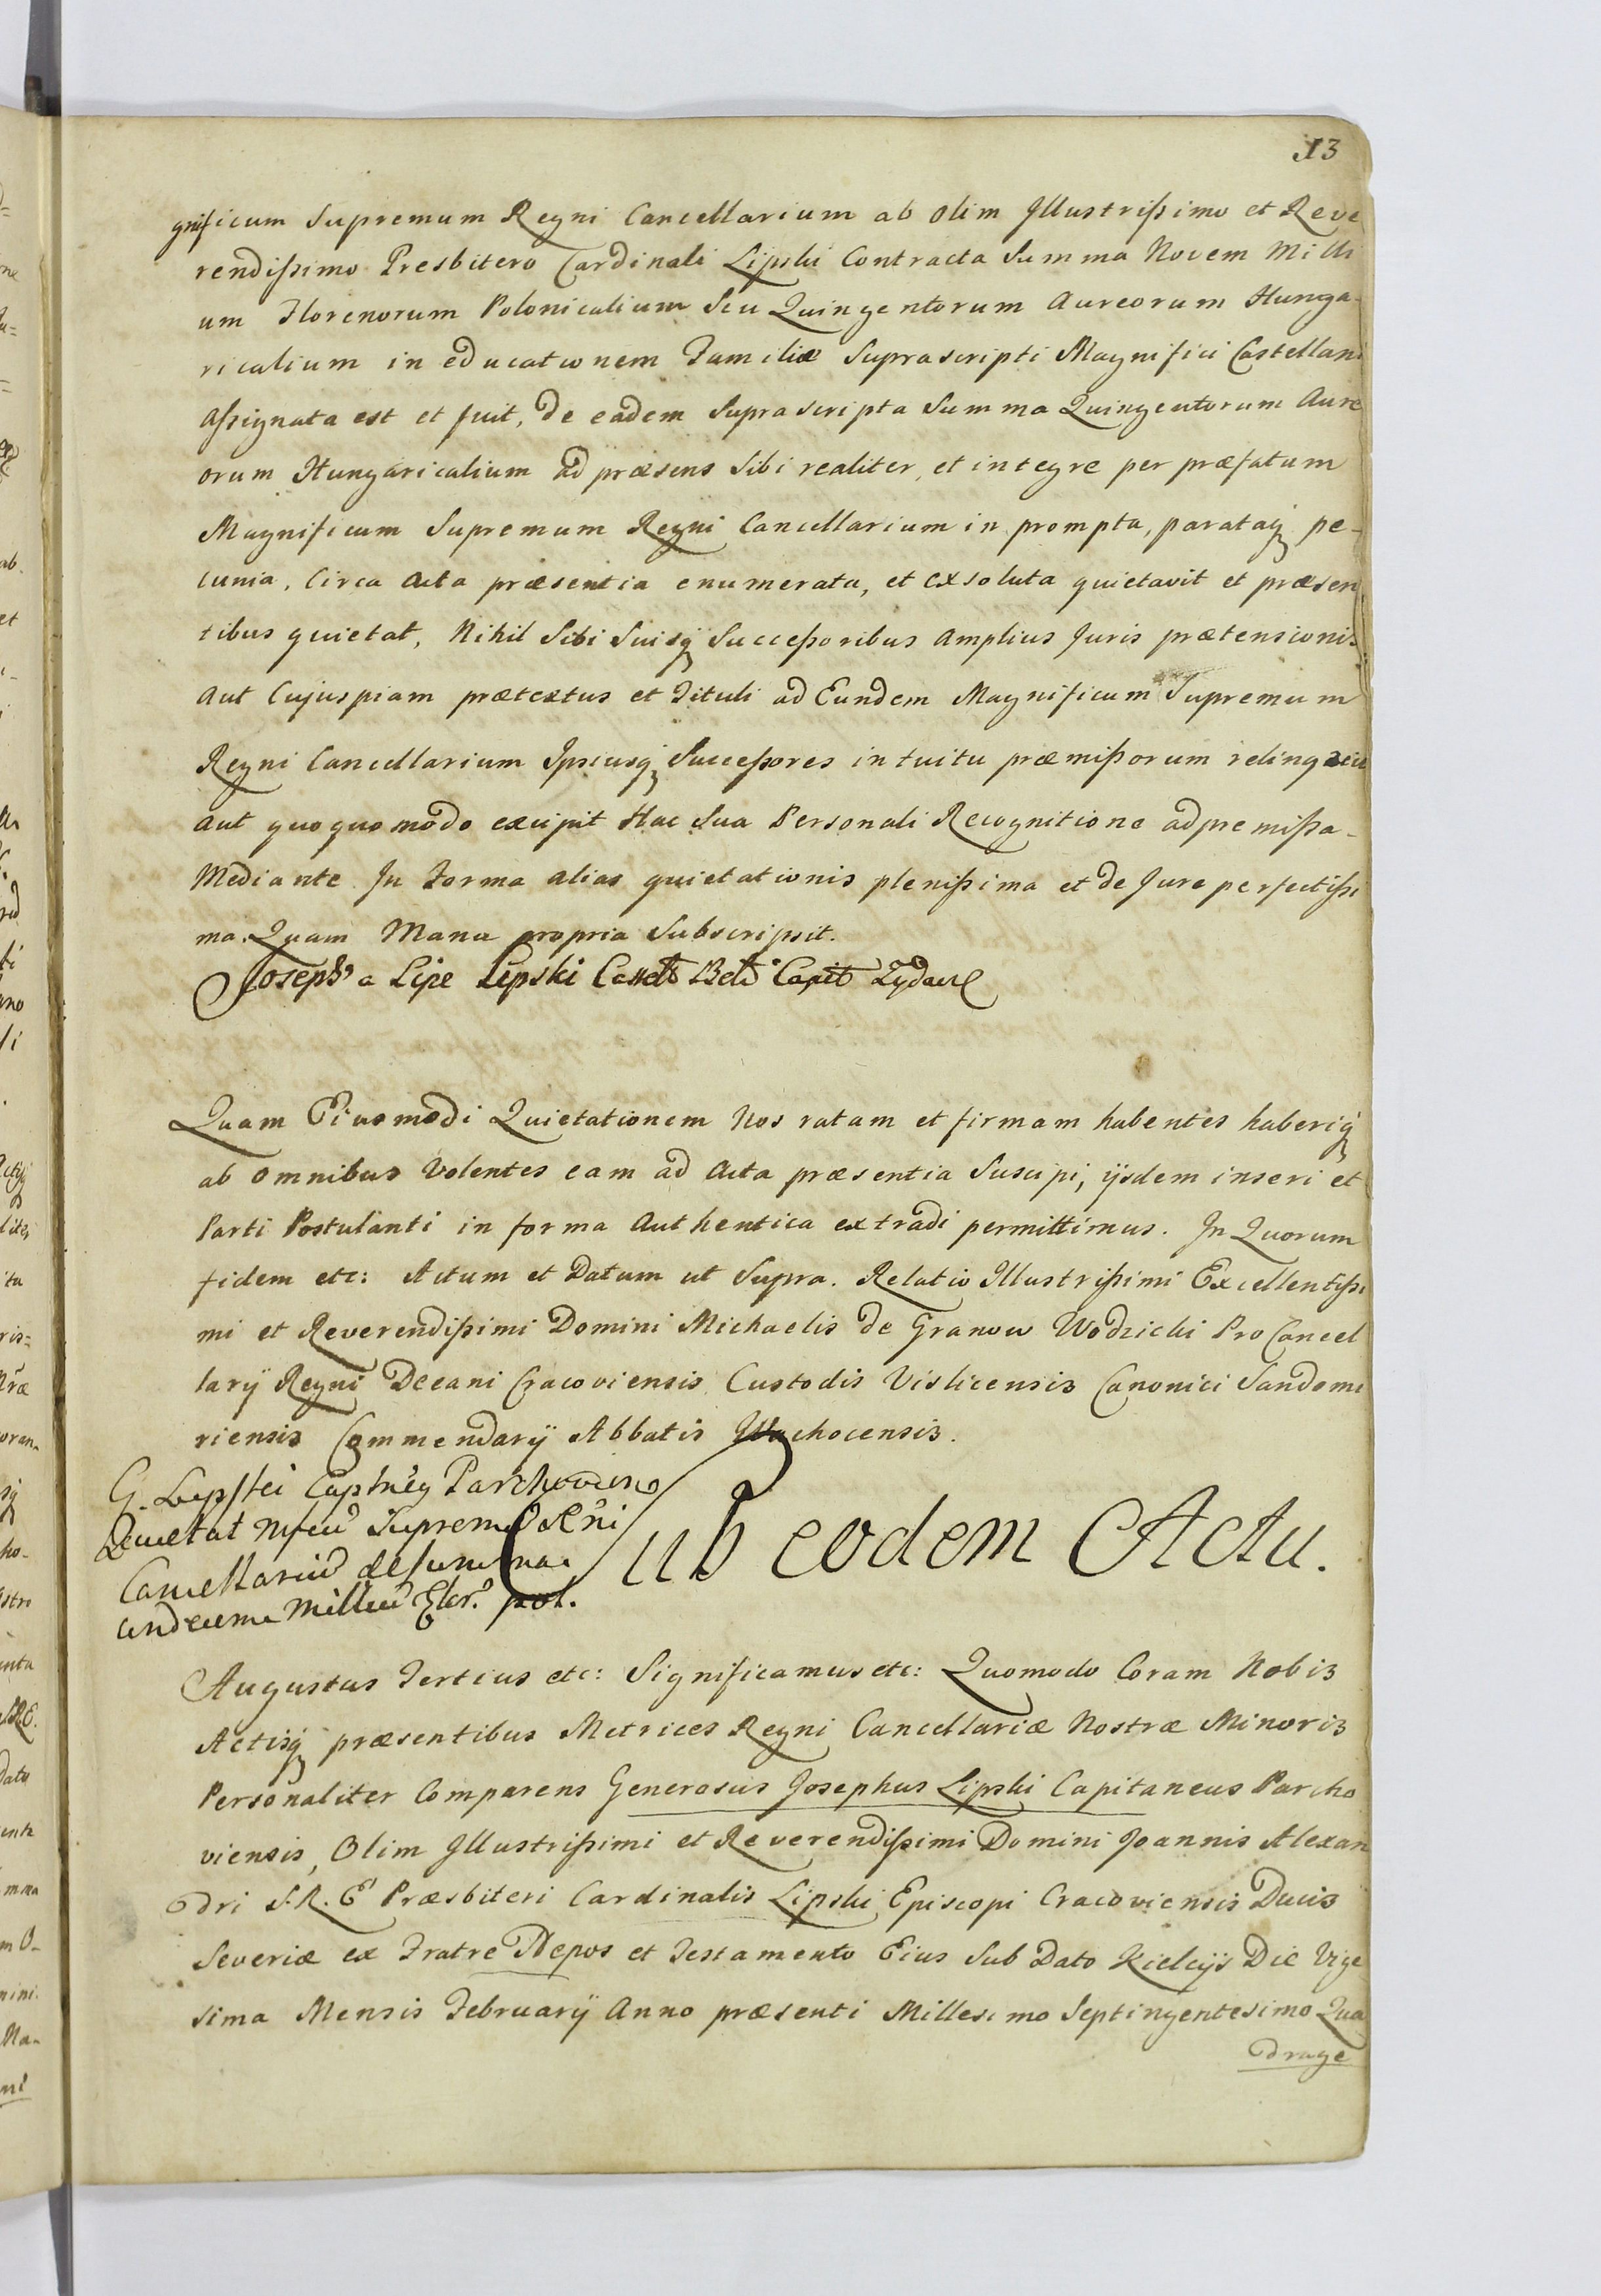 13
gnificum Supremum Regni Cancellarium ab olim Illustrißimo et Reve
rendißimo Presbitero Cardinali Lipski Contracta Summa Novem Milli
um Florenorum Polonicalium Seu Quingentorum Aureorum Hunga-
ricalium in educationem Familiæ Suprascripti Magnifici Castellani
Aßignata est et fuit, de eadem Suprascripta Summa Quingentorum Aure
orum Hungaricalium ad præsens Sibi realiter, et integre per præfatum
Magnificum Supremum Regni Cancellarium in prompta, parataq pe-
cunia, Circa Acta præsentia enumerata, et exsoluta quietavit et præsen
tibus quietat, Nihil Sibi Suisq Succeßoribus Amplius Juris prætensionis
Aut Cujuspiam prætextus et Tituli ad Eundem Magnificum Supremum
Regni Cancellarium Ipsiusq Succeßores intuitu præmißorum
aut quoquomodo excipit Hac Sua Personali Recognitione ad premißa-
Mediante. In Forma alias quietationis plenißima et de Jure perfectißi
ma. Quam Manu propria Subscripsit.
Josephs a Lipe Lipski Capit
Quam Eiusmodi Quietationem Nos ratam et firmam habentes haberiq
ab omnibus Volentes eam ad Acta præsentia Suscipi, ijsdem inseri et
Parti Postulanti in forma Authentica extradi permittimus. In Quorum
fidem etc: Actum et Datum ut Supra. Relatio Illustrißimi Excellentißi
mi et Reverendißimi Domini Michaelis de Granow Wodzicki ProCancel
larÿ Regni Decani Cracoviensis Custodis Vislicensis Canonici Sandomi
riensis CommendarÿAbbatis Wachocensis.
G. Lipski Parchovien
Quietat Supremũ Rñi
Cancellariũ de summa
undecem Milliũ Flor. pol.
Sub eodem Actu.
Augustus Tertius etc: Significamus etc: Quomodo Coram Nobis
Actisq præsentibus Metrices Regni Cancellariæ Nostræ Minoris
Personaliter Comparens Generosus Josephus Lipski Capitaneus Parcho
viensis, Olim Illustrißimi et Reverendißimi Domini Joannis Alexan
dri S. R. E Præsbiteri Cardinalis Lipski Episcopi Cracoviensis Ducis
Severiæ ex Fratre Nepos et Testamento Eius Sub Dato Kielcijs Die Vige
sima Mensis Februarÿ Anno præsenti Millesimo Septingentesimo Qua
drage